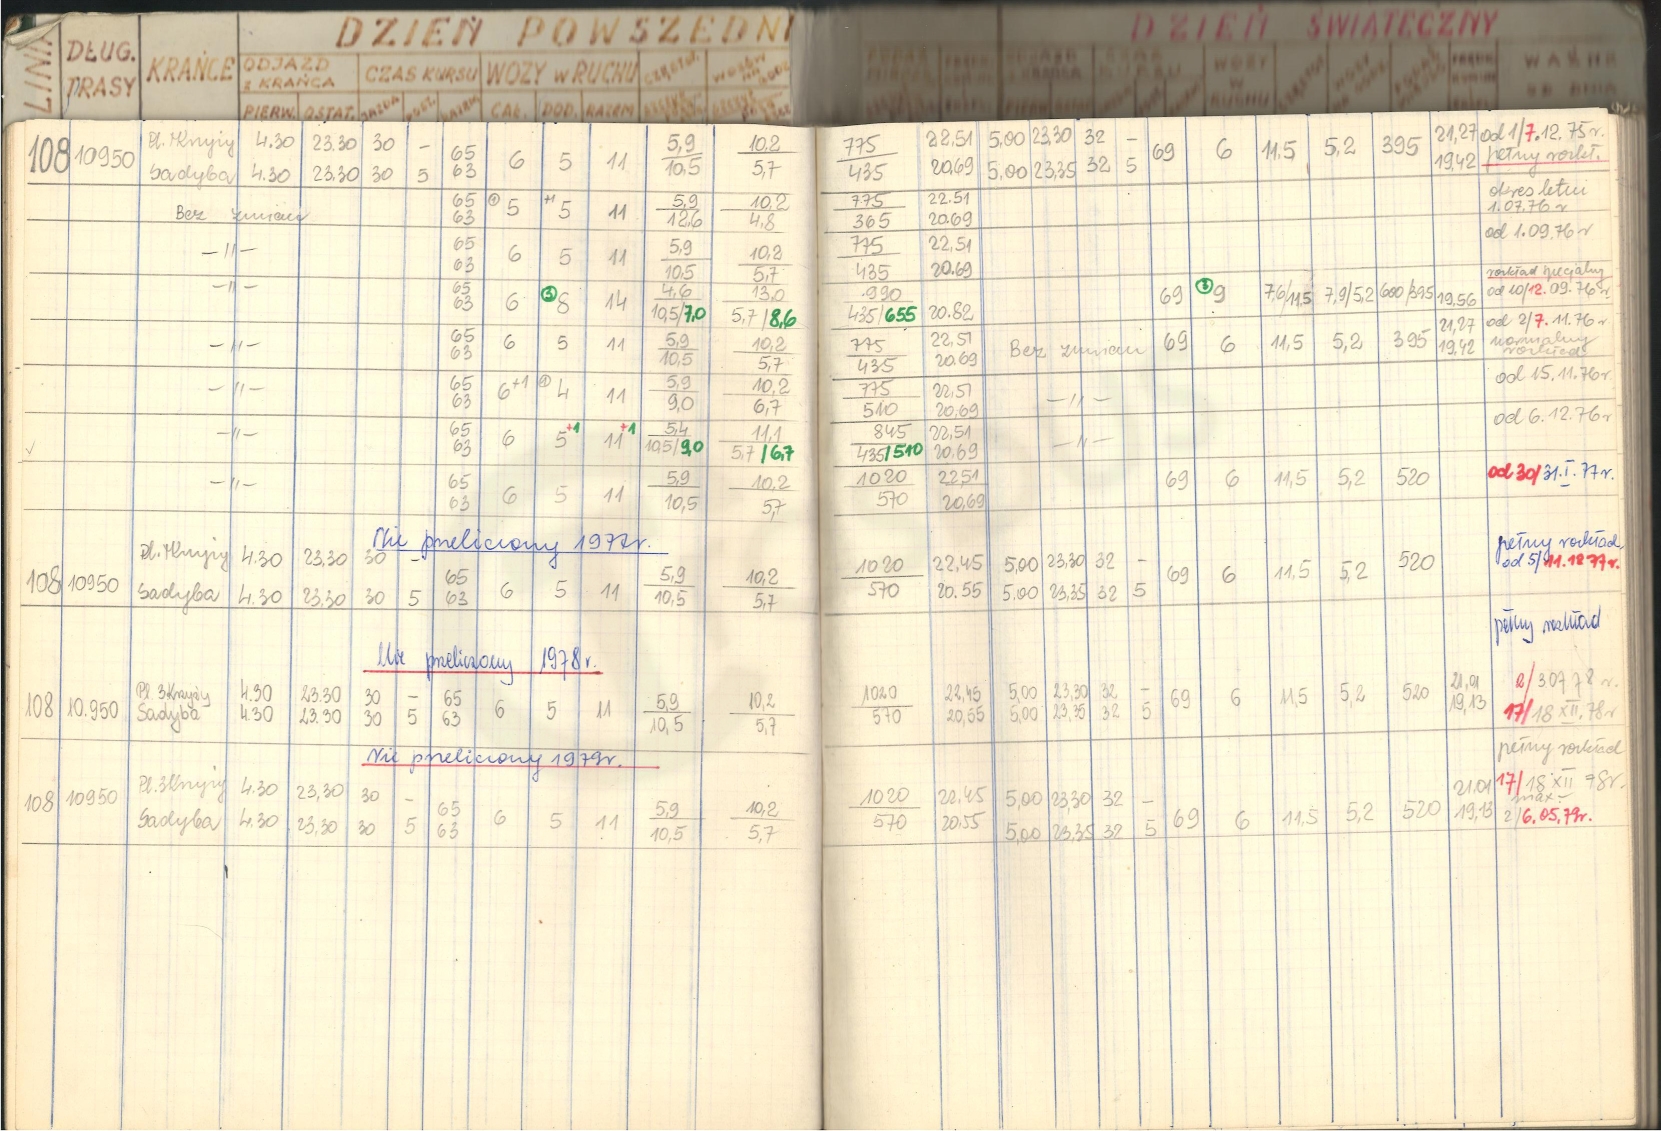 DZIEŃ POWSZEDNI DZIEŃ ŚWIĄTECZNY
LINIA DŁUG. TRASY KRAŃCE ODJAZD z KRAŃCA CZAS KURSU WOZY w RUCHU WAŻNE OD DNIA
PIERW. OSTAT. JAZDA CAŁ. DOD. RAZEM
108 10950 Pl. 3 Krzyży 4.30 23.30 30 – 65 6 5 11 5,9 10,2 775 22,51 5,00 23,30 32 – 69 6 11,5 5,2 395 21,27 od 1/7.12.75 r.
Sadyba 4.30 23.30 30 5 63 10,5 5,7 435 20,69 5,00 23,35 32 5 19,42 pełny rozkł.
Bez zmian 65 5 +1 5 11 5,9 10,2 775 22.51 okres letni
63 12,6 4,8 365 20.69 1.07.76 r
–"– 65 6 5 11 5,9 10,2 775 22,51 od 1.09.76 r
63 10,5 5,7 435 20.69
–"– 65 6 3 8 14 4,6 13,0 990 69 3 9 7,6/11,5 7,9/5,2 600/395 19,56 rozkład specjalny
63 10,5/7,0 5,7/8,6 435/655 20.82 od 10/12.09.76 r
–"– 65 6 5 11 5,9 10,2 775 22,51 Bez zmian 69 6 11,5 5,2 395 21,27 od 2/7.11.76 r
63 10,5 5,7 435 20,69 19,42 normalny rozkład
–"– 65 6+1 4 11 5,9 10,2 775 22,51 –"– od 15.11.76 r.
63 9,0 6,7 510 20,69
–"– 65 6 5+1 11+1 5,4 11,1 845 22,51 –"– od 6.12.76 r
63 10,5/9,0 5,7/6,7 435/510 20.69
–"– 65 6 5 11 5,9 10,2 1020 22,51 69 6 11,5 5,2 520 od 30/31.I.77 r.
63 10,5 5,7 570 20,69
Nie przeliczony 1977r.
108 10950 Pl. 3 Krzyży 4.30 23,30 30 – 65 6 5 11 5,9 10,2 1020 22,45 5,00 23,30 32 – 69 6 11,5 5,2 520 pełny rozkład
Sadyba 4.30 23,30 30 5 63 10,5 5,7 570 20.55 5,00 23,35 32 5 od 5/11.12 77 r.
Nie przeliczony 1978 r. pełny rozkład
108 10.950 Pl. 3 Krzyży 4.30 23.30 30 – 65 6 5 11 5,9 10,2 1020 22,45 5,00 23,30 32 – 69 6 11,5 5,2 520 21,01 2/3 07 78 r.
Sadyba 4.30 23.30 30 5 63 10,5 5,7 570 20,55 5,00 23,35 32 5 19,13 17/18 XII. 78r
Nie przeliczony 1979r. pełny rozkład
108 10950 Pl. 3 Krzyży 4.30 23,30 30 – 65 6 5 11 5,9 10,2 1020 22.45 5,00 23,30 32 – 69 6 11,5 5,2 520 21,01 17/18 XII 78r
Sadyba 4.30 23,30 30 5 63 10,5 5,7 570 20.55 5,00 23,35 32 5 19,13 2/6.05.79r.